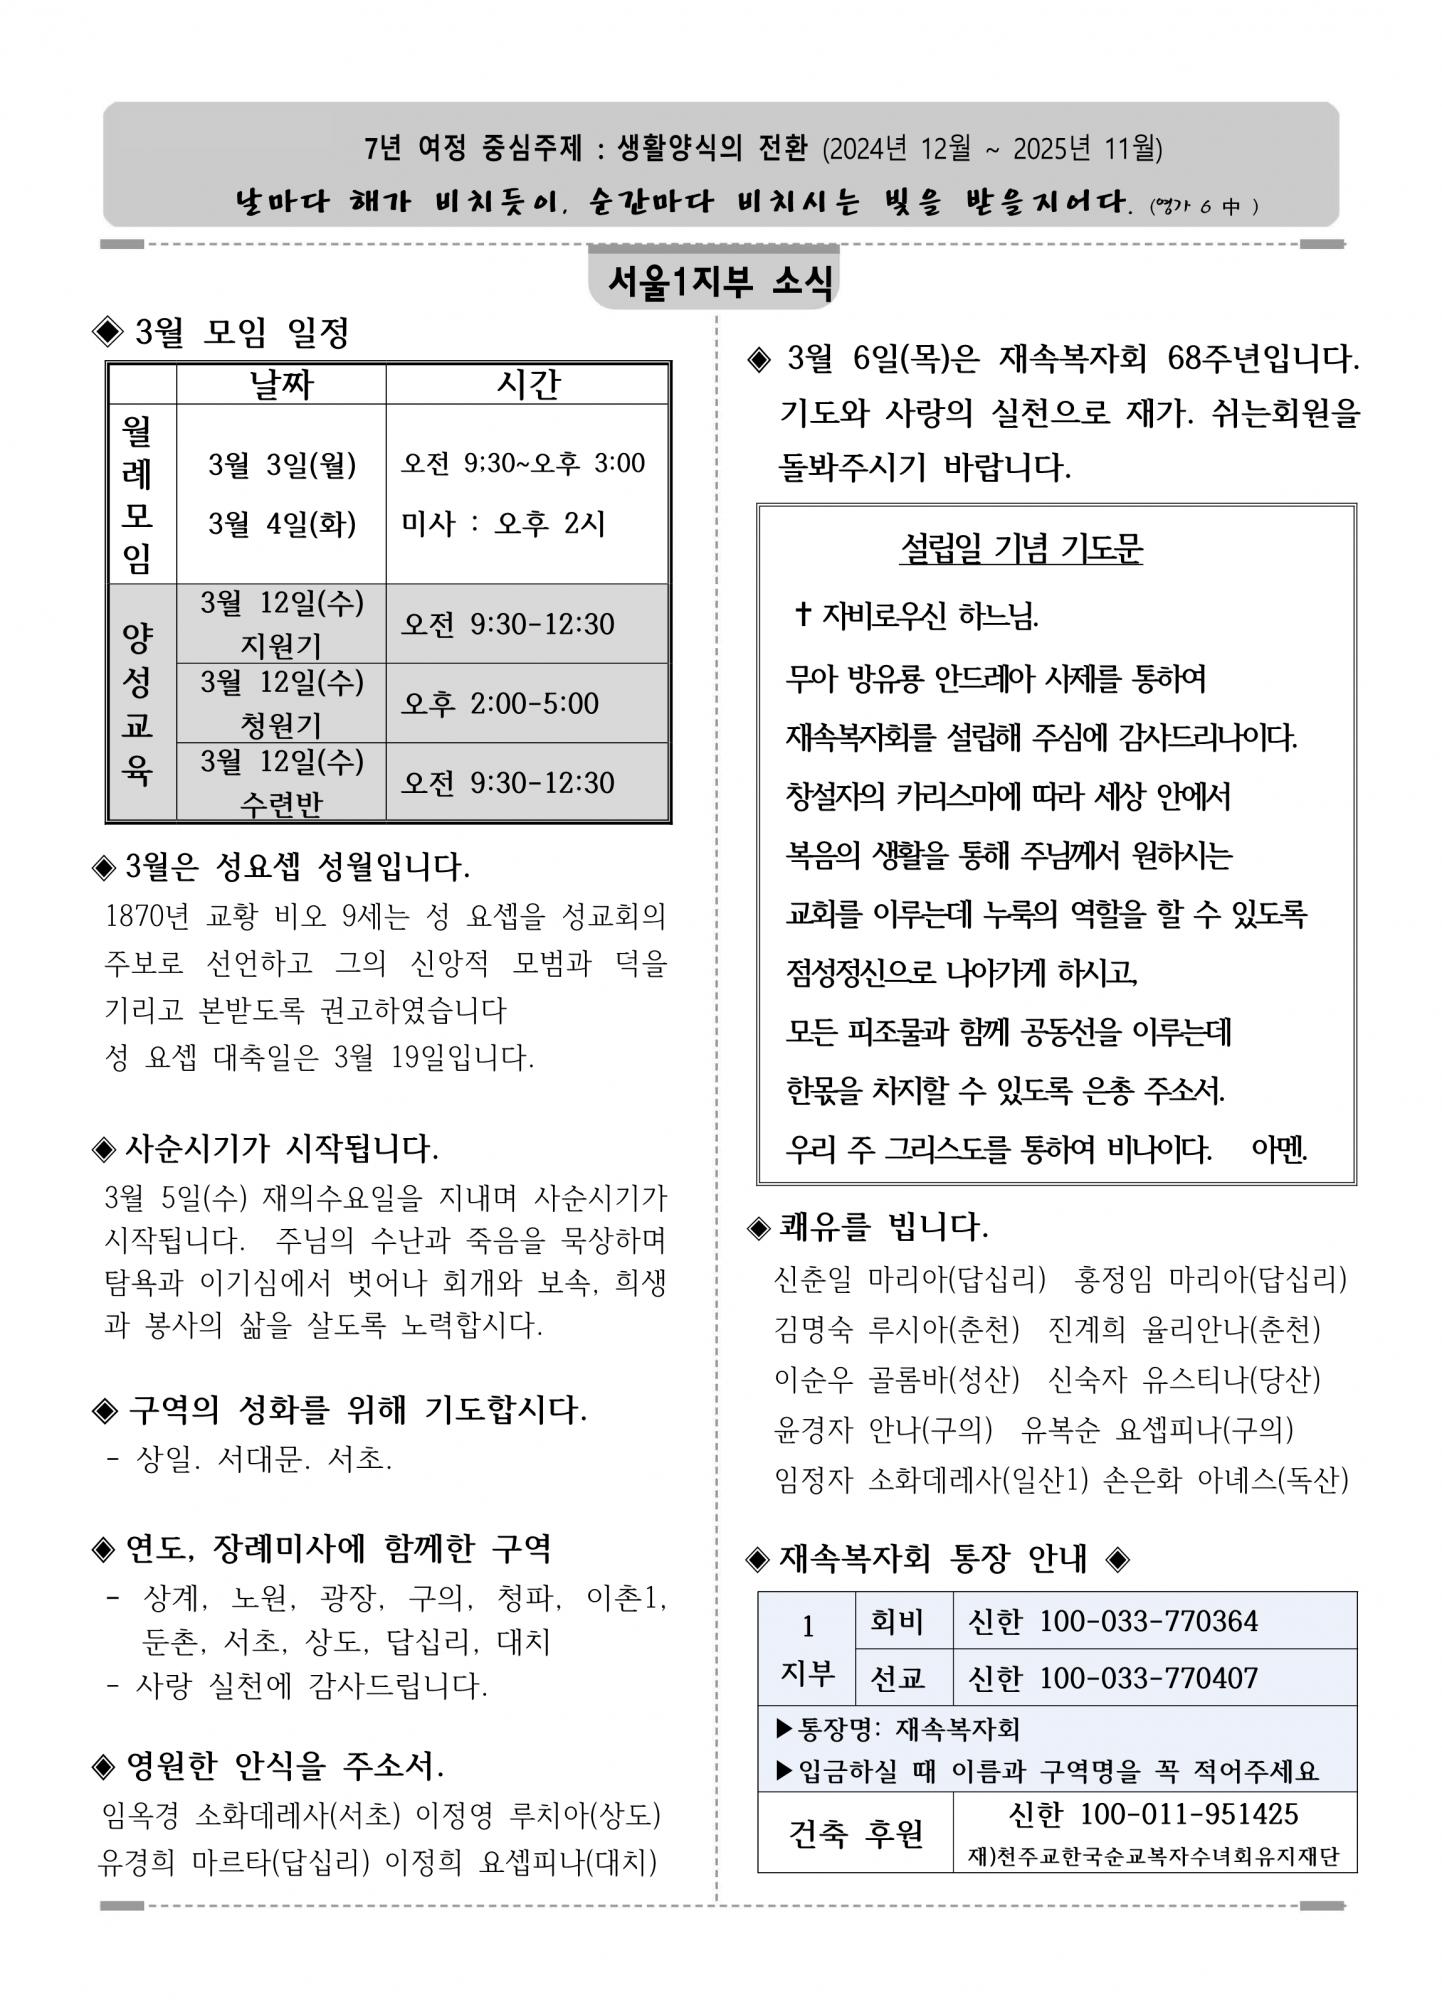 7년 여정 중심주제 : 생활양식의 전환 (2024년 12월 ~ 2025년 11월)
날마다 해가 비치듯이, 순간마다 비치시는 빛을 받을지어다. (영가 6 中 )
서울1지부 소식
◈ 3월 모임 일정
날짜 시간
월례모임
3월 3일(월) 오전 9;30~오후 3:00
3월 4일(화) 미사 : 오후 2시
양성교육
3월 12일(수)
지원기
오전 9:30-12:30
3월 12일(수)
청원기
오후 2:00-5:00
3월 12일(수)
수련반
오전 9:30-12:30
◈ 3월은 성요셉 성월입니다.
1870년 교황 비오 9세는 성 요셉을 성교회의
주보로 선언하고 그의 신앙적 모범과 덕을
기리고 본받도록 권고하였습니다
성 요셉 대축일은 3월 19일입니다.
◈ 사순시기가 시작됩니다.
3월 5일(수) 재의수요일을 지내며 사순시기가
시작됩니다. 주님의 수난과 죽음을 묵상하며
탐욕과 이기심에서 벗어나 회개와 보속, 희생
과 봉사의 삶을 살도록 노력합시다.
◈ 구역의 성화를 위해 기도합시다.
- 상일. 서대문. 서초.
◈ 연도, 장례미사에 함께한 구역
- 상계, 노원, 광장, 구의, 청파, 이촌1,
둔촌, 서초, 상도, 답십리, 대치
- 사랑 실천에 감사드립니다.
◈ 영원한 안식을 주소서.
임옥경 소화데레사(서초) 이정영 루치아(상도)
유경희 마르타(답십리) 이정희 요셉피나(대치)
◈ 3월 6일(목)은 재속복자회 68주년입니다.
기도와 사랑의 실천으로 재가. 쉬는회원을
돌봐주시기 바랍니다.
설립일 기념 기도문
✝ 자비로우신 하느님.
무아 방유룡 안드레아 사제를 통하여
재속복자회를 설립해 주심에 감사드리나이다.
창설자의 카리스마에 따라 세상 안에서
복음의 생활을 통해 주님께서 원하시는
교회를 이루는데 누룩의 역할을 할 수 있도록
점성정신으로 나아가게 하시고,
모든 피조물과 함께 공동선을 이루는데
한몫을 차지할 수 있도록 은총 주소서.
우리 주 그리스도를 통하여 비나이다. 아멘.
◈ 쾌유를 빕니다.
신춘일 마리아(답십리) 홍정임 마리아(답십리)
김명숙 루시아(춘천) 진계희 율리안나(춘천)
이순우 골롬바(성산) 신숙자 유스티나(당산)
윤경자 안나(구의) 유복순 요셉피나(구의)
임정자 소화데레사(일산1) 손은화 아녜스(독산)
◈ 재속복자회 통장 안내 ◈
1
지부
회비 신한 100-033-770364
선교 신한 100-033-770407
▶통장명: 재속복자회
▶입금하실 때 이름과 구역명을 꼭 적어주세요
건축 후원
신한 100-011-951425
재)천주교한국순교복자수녀회유지재단